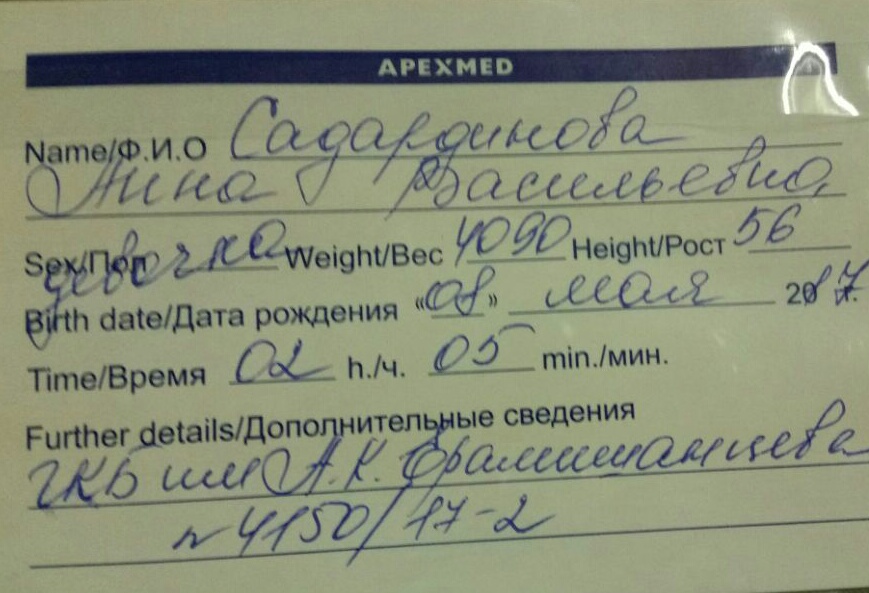 APEXMED
Name/Ф.И.О Садардинова
Анна Васильевна
Sex/Пол девочка Weight/Вес 4090 Height/Рост 56
Birth date/Дата рождения «08» мая 2017.
Time/Время 02 h./ч. 05 min./мин.
Further details/Дополнительные сведения
ГКБ им А.К. Ерамишанцева
n 4150/17-2